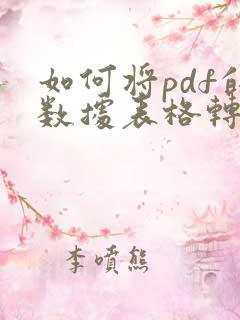 如何將pdf
數據表格轉
李噴熊